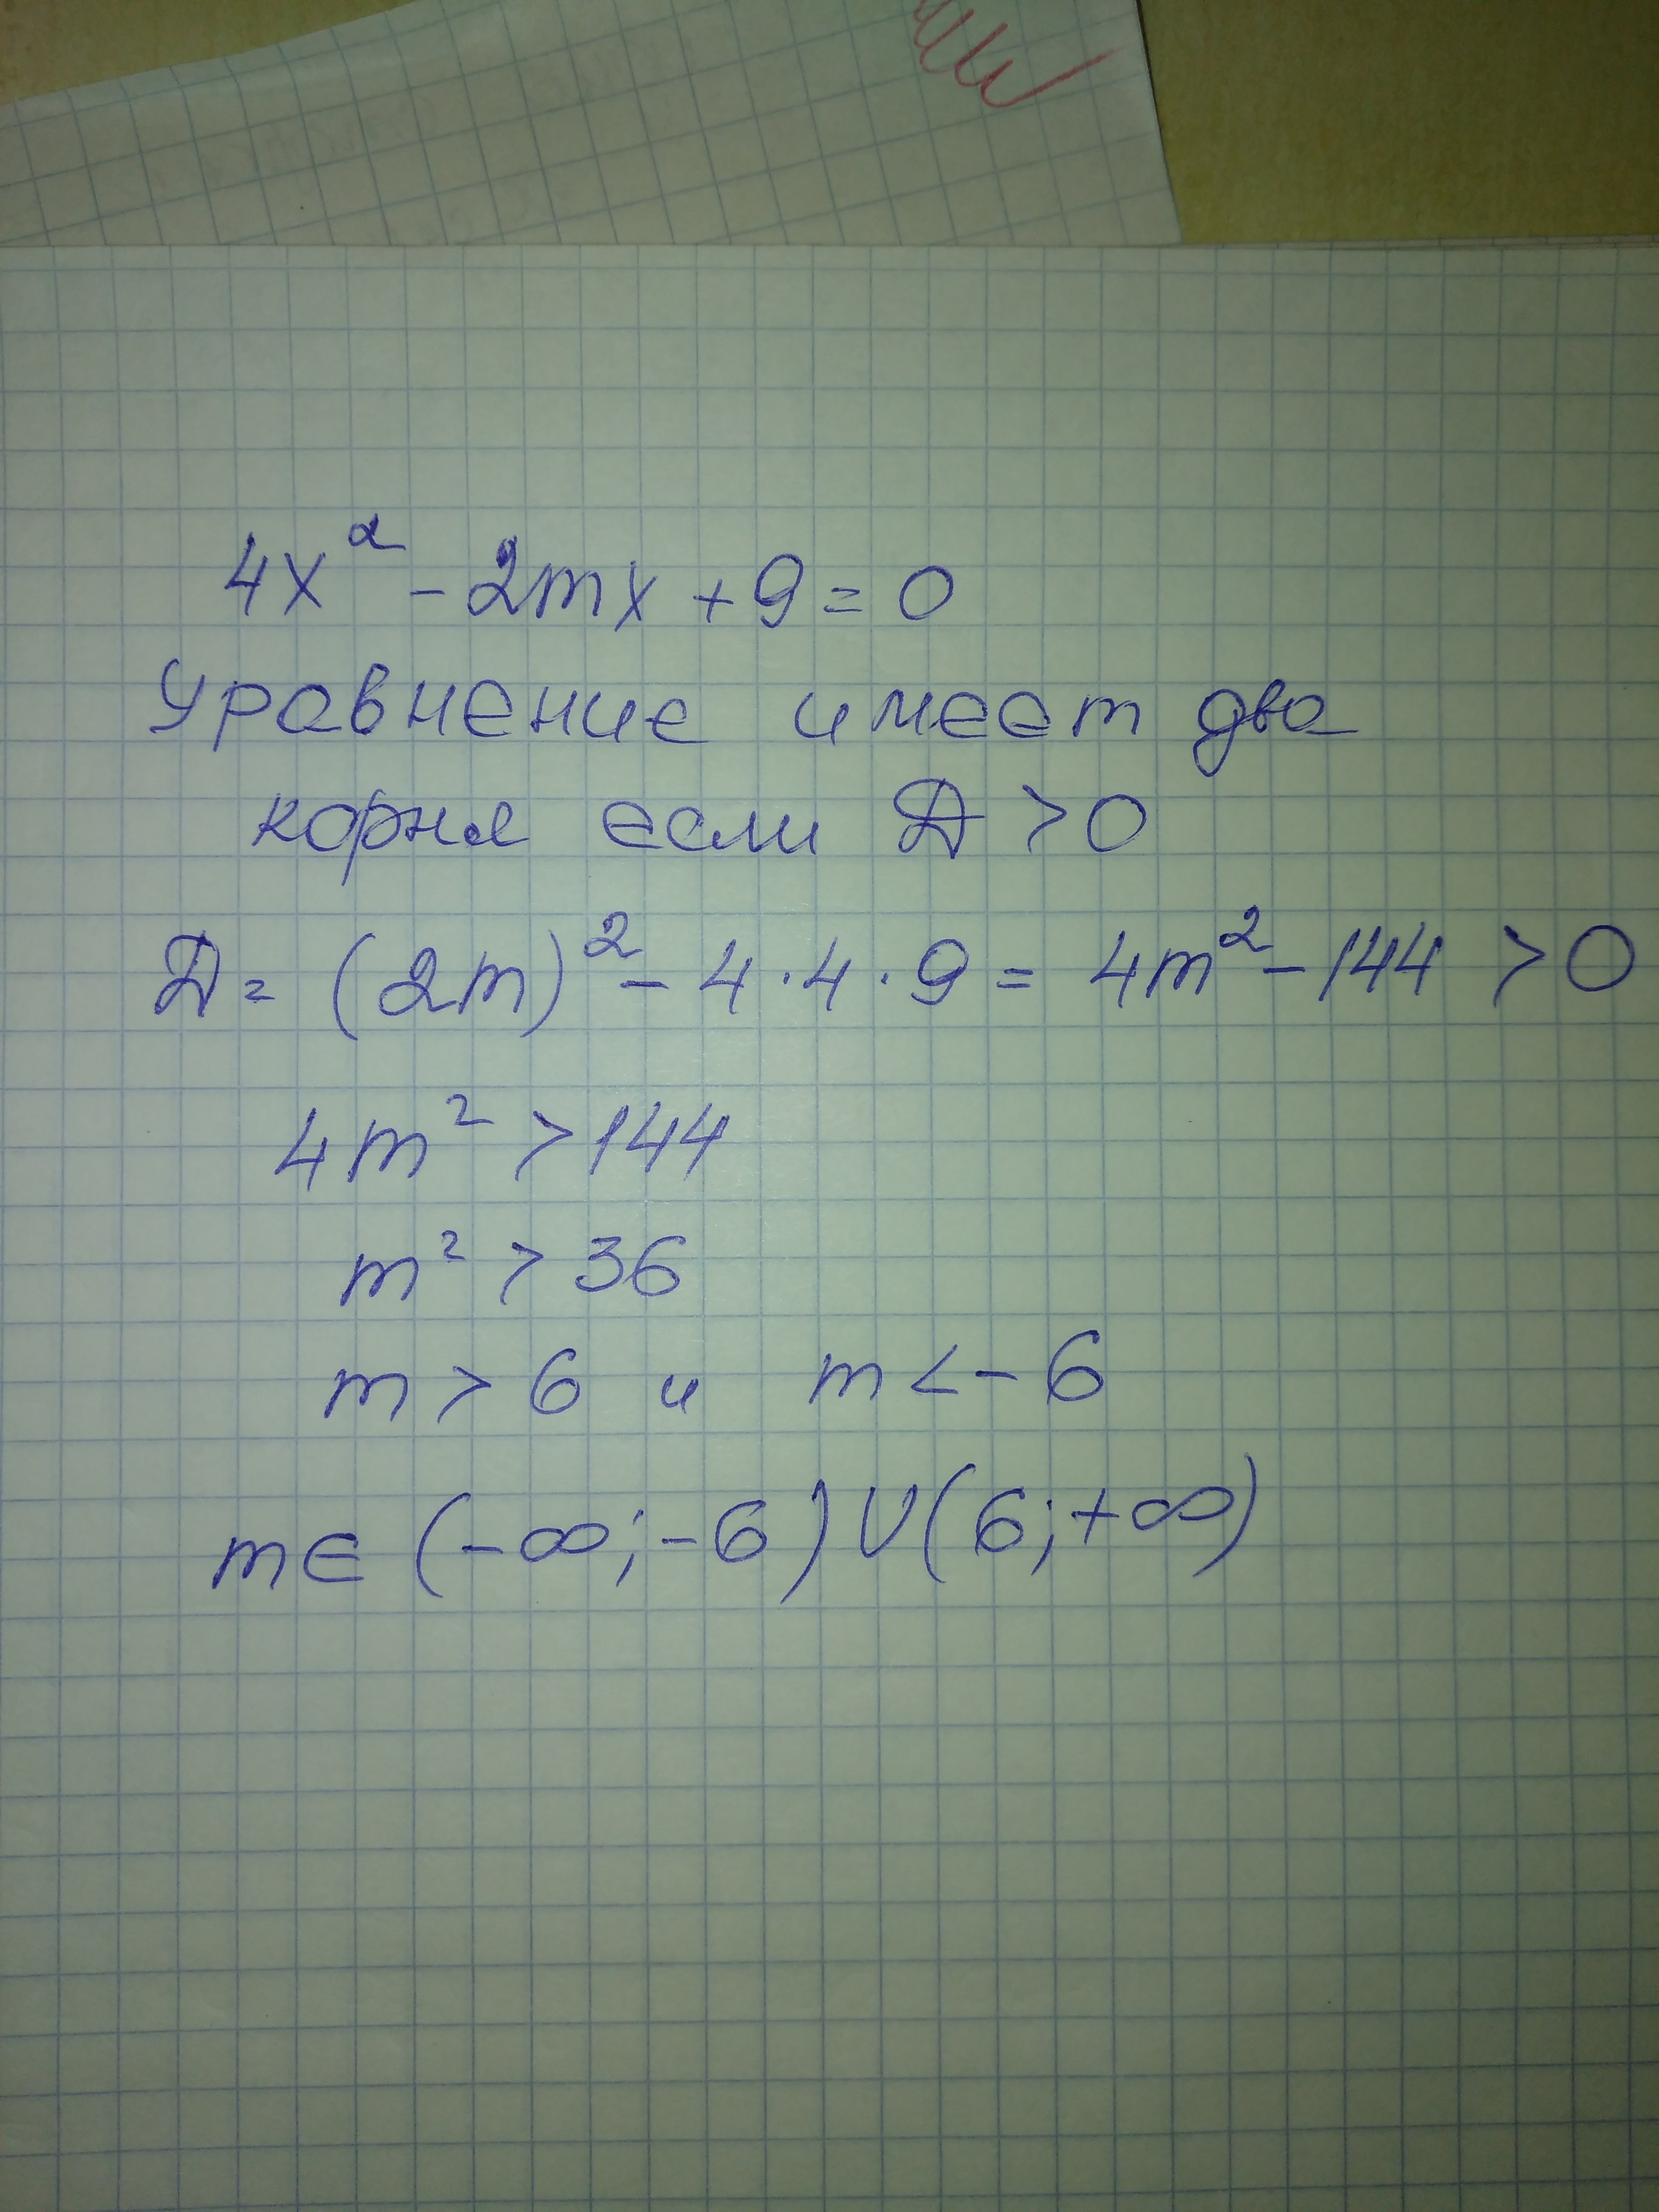 4x² - 2mx + 9 = 0
Уравнение имеет два
корня если Д > 0
Д = (2m)² - 4 · 4 · 9 = 4m² - 144 > 0
4m² > 144
m² > 36
m > 6 и m < - 6
m ∈ (-∞; -6) ∪ (6; +∞)